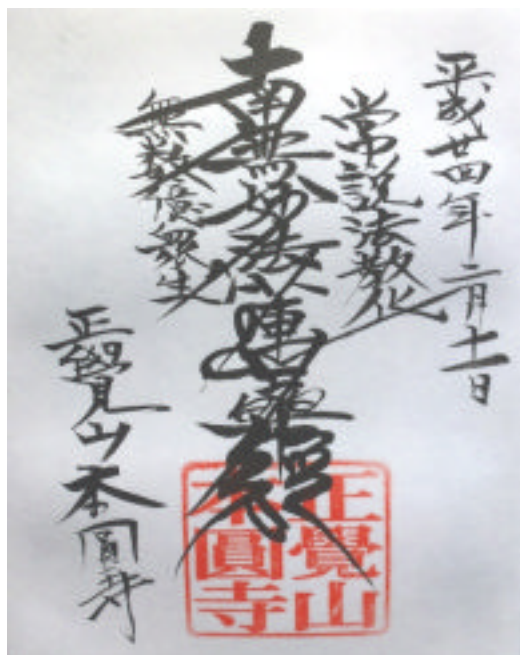 平成廿四年二月十一日
常説法教化
南無妙法蓮華經
無数億衆生
正覺山本圓寺
正覺山
本圓寺